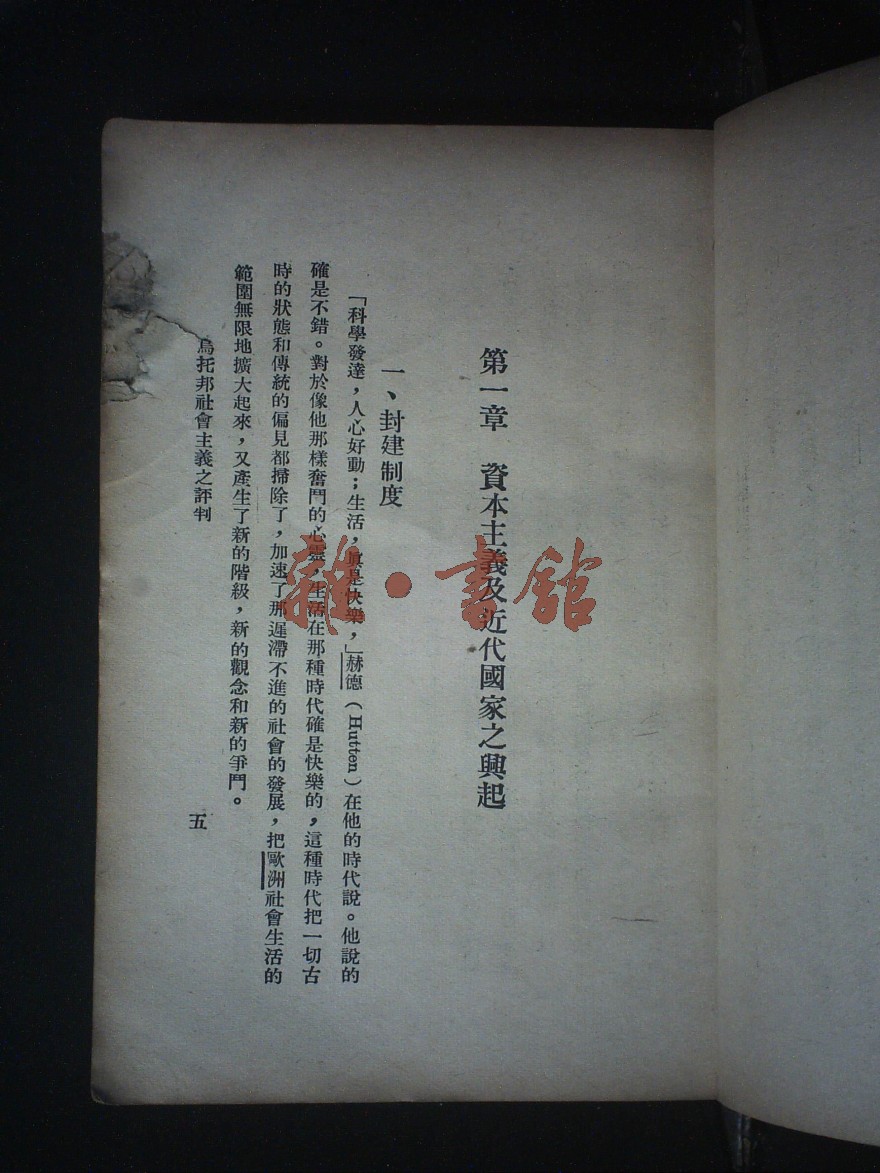 第一章　資本主義及近代國家之興起
一、封建制度
「科學發達，人心好動；生活，眞是快樂，」赫德（Hutten）在他的時代說。他說的
確是不錯。對於像他那樣奮鬥的心靈，生活在那種時代確是快樂的，這種時代把一切古
時的狀態和傳統的偏見都掃除了，加速了那遲滯不進的社會的發展，把歐洲社會生活的
範圍無限地擴大起來，又產生了新的階級，新的觀念和新的爭鬥。
烏托邦社會主義之評判
五
雜·書館